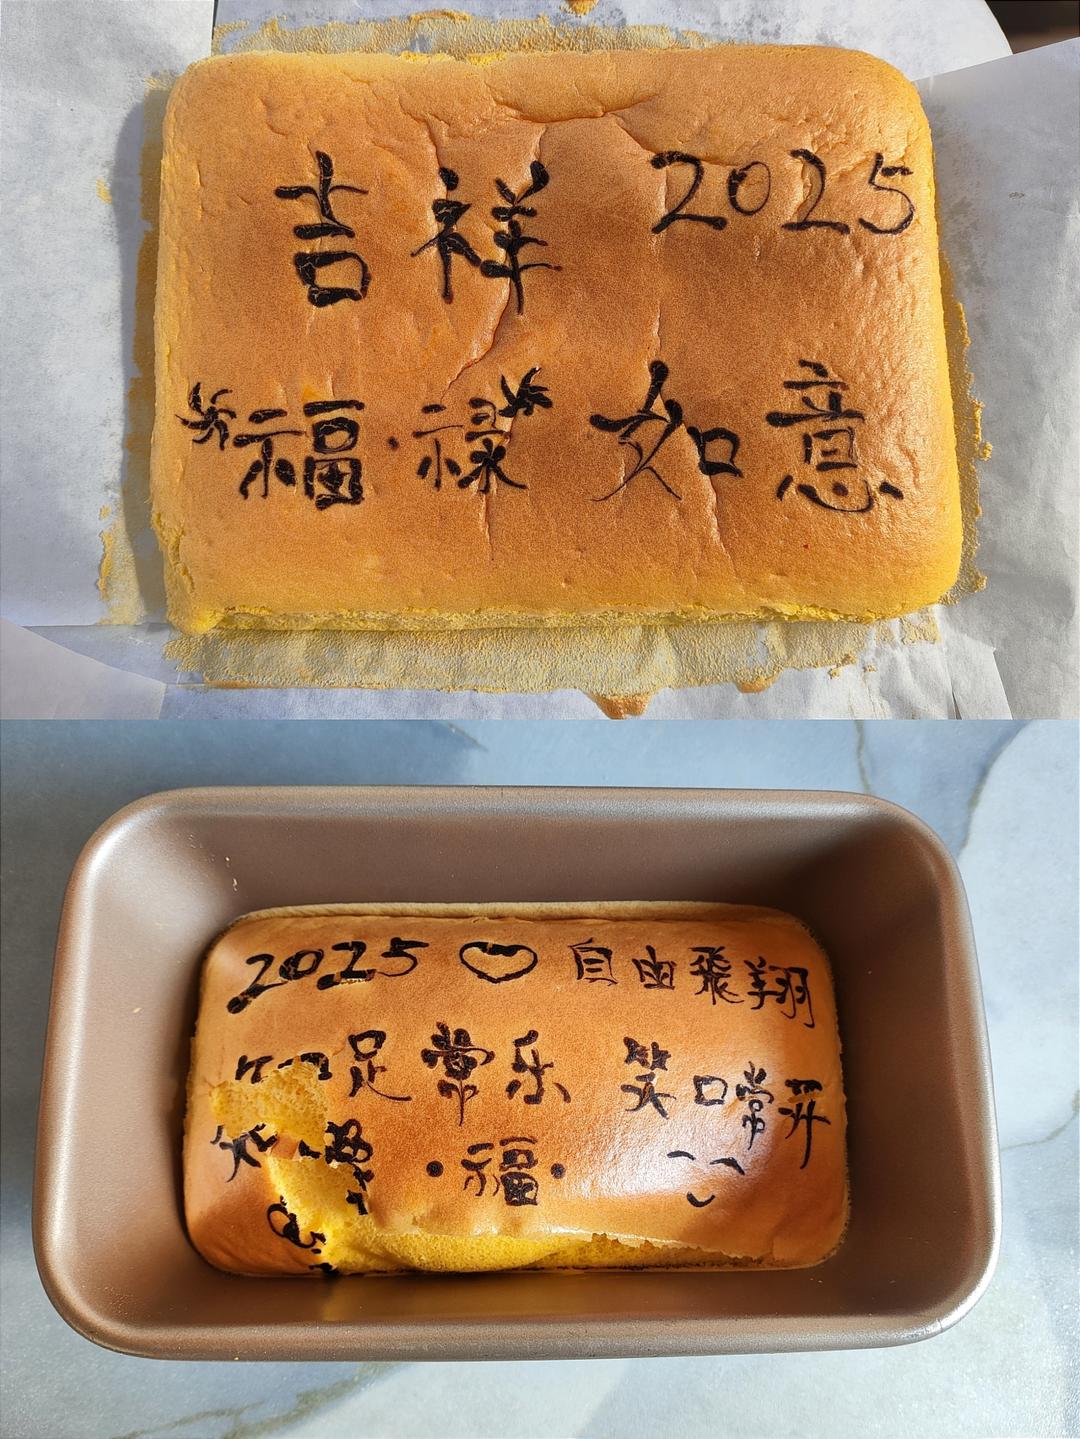 吉祥 2025
福·禄 如意
2025 ♡ 自由飛翔
知足常乐 笑口常开
·福·